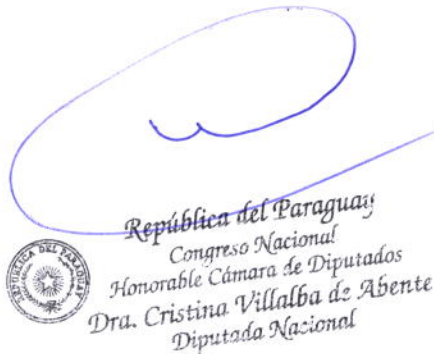 República del Paraguay
Congreso Nacional
Honorable Cámara de Diputados
Dra. Cristina Villalba de Abente
Diputada Nacional
REPUBLICA DEL PARAGUAY